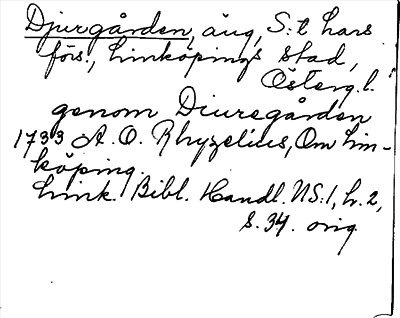 Djurgården, äng, S:t Lars
förs., Linköpings stad,
Österg. l.
genom Diuregården
1733 A. O. Rhyzelius, Om Lin-
köping.
Link. Bibl. Handl. NS:1, h. 2,
s. 34. orig.